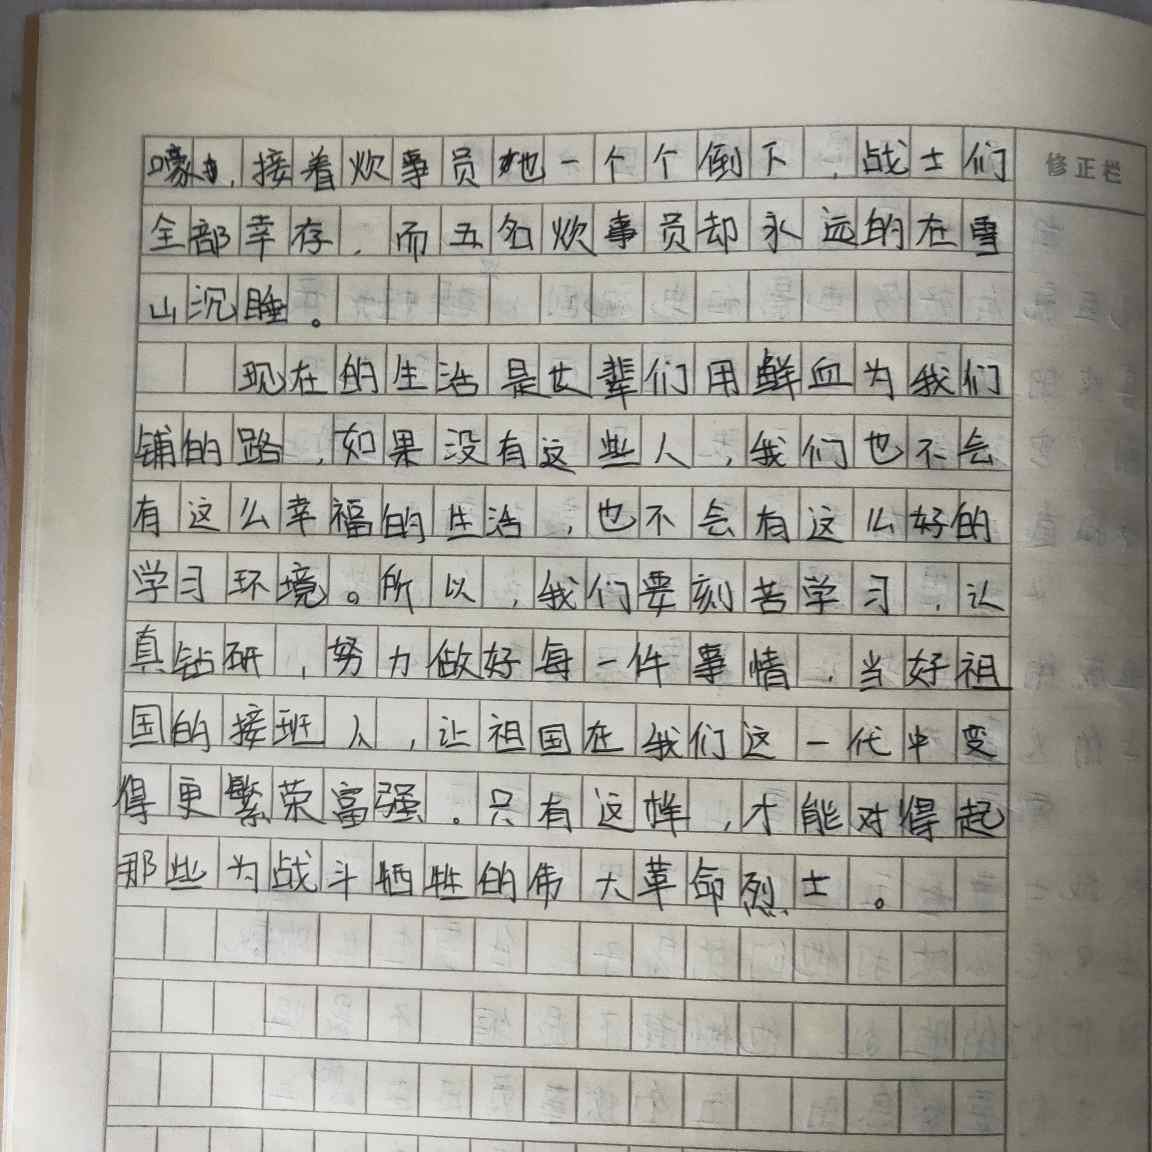 嚎，接着炊事员也一个个倒下，战士们
修正栏
全部幸存，而五名炊事员却永远的在雪
山沉睡。
现在的生活是长辈们用鲜血为我们
铺的路，如果没有这些人，我们也不会
有这么幸福的生活，也不会有这么好的
学习环境。所以，我们要刻苦学习，认
真钻研，努力做好每一件事情，当好祖
国的接班人，让祖国在我们这一代中变
得更繁荣富强。只有这样，才能对得起
那些为战斗牺牲的伟大革命烈士。